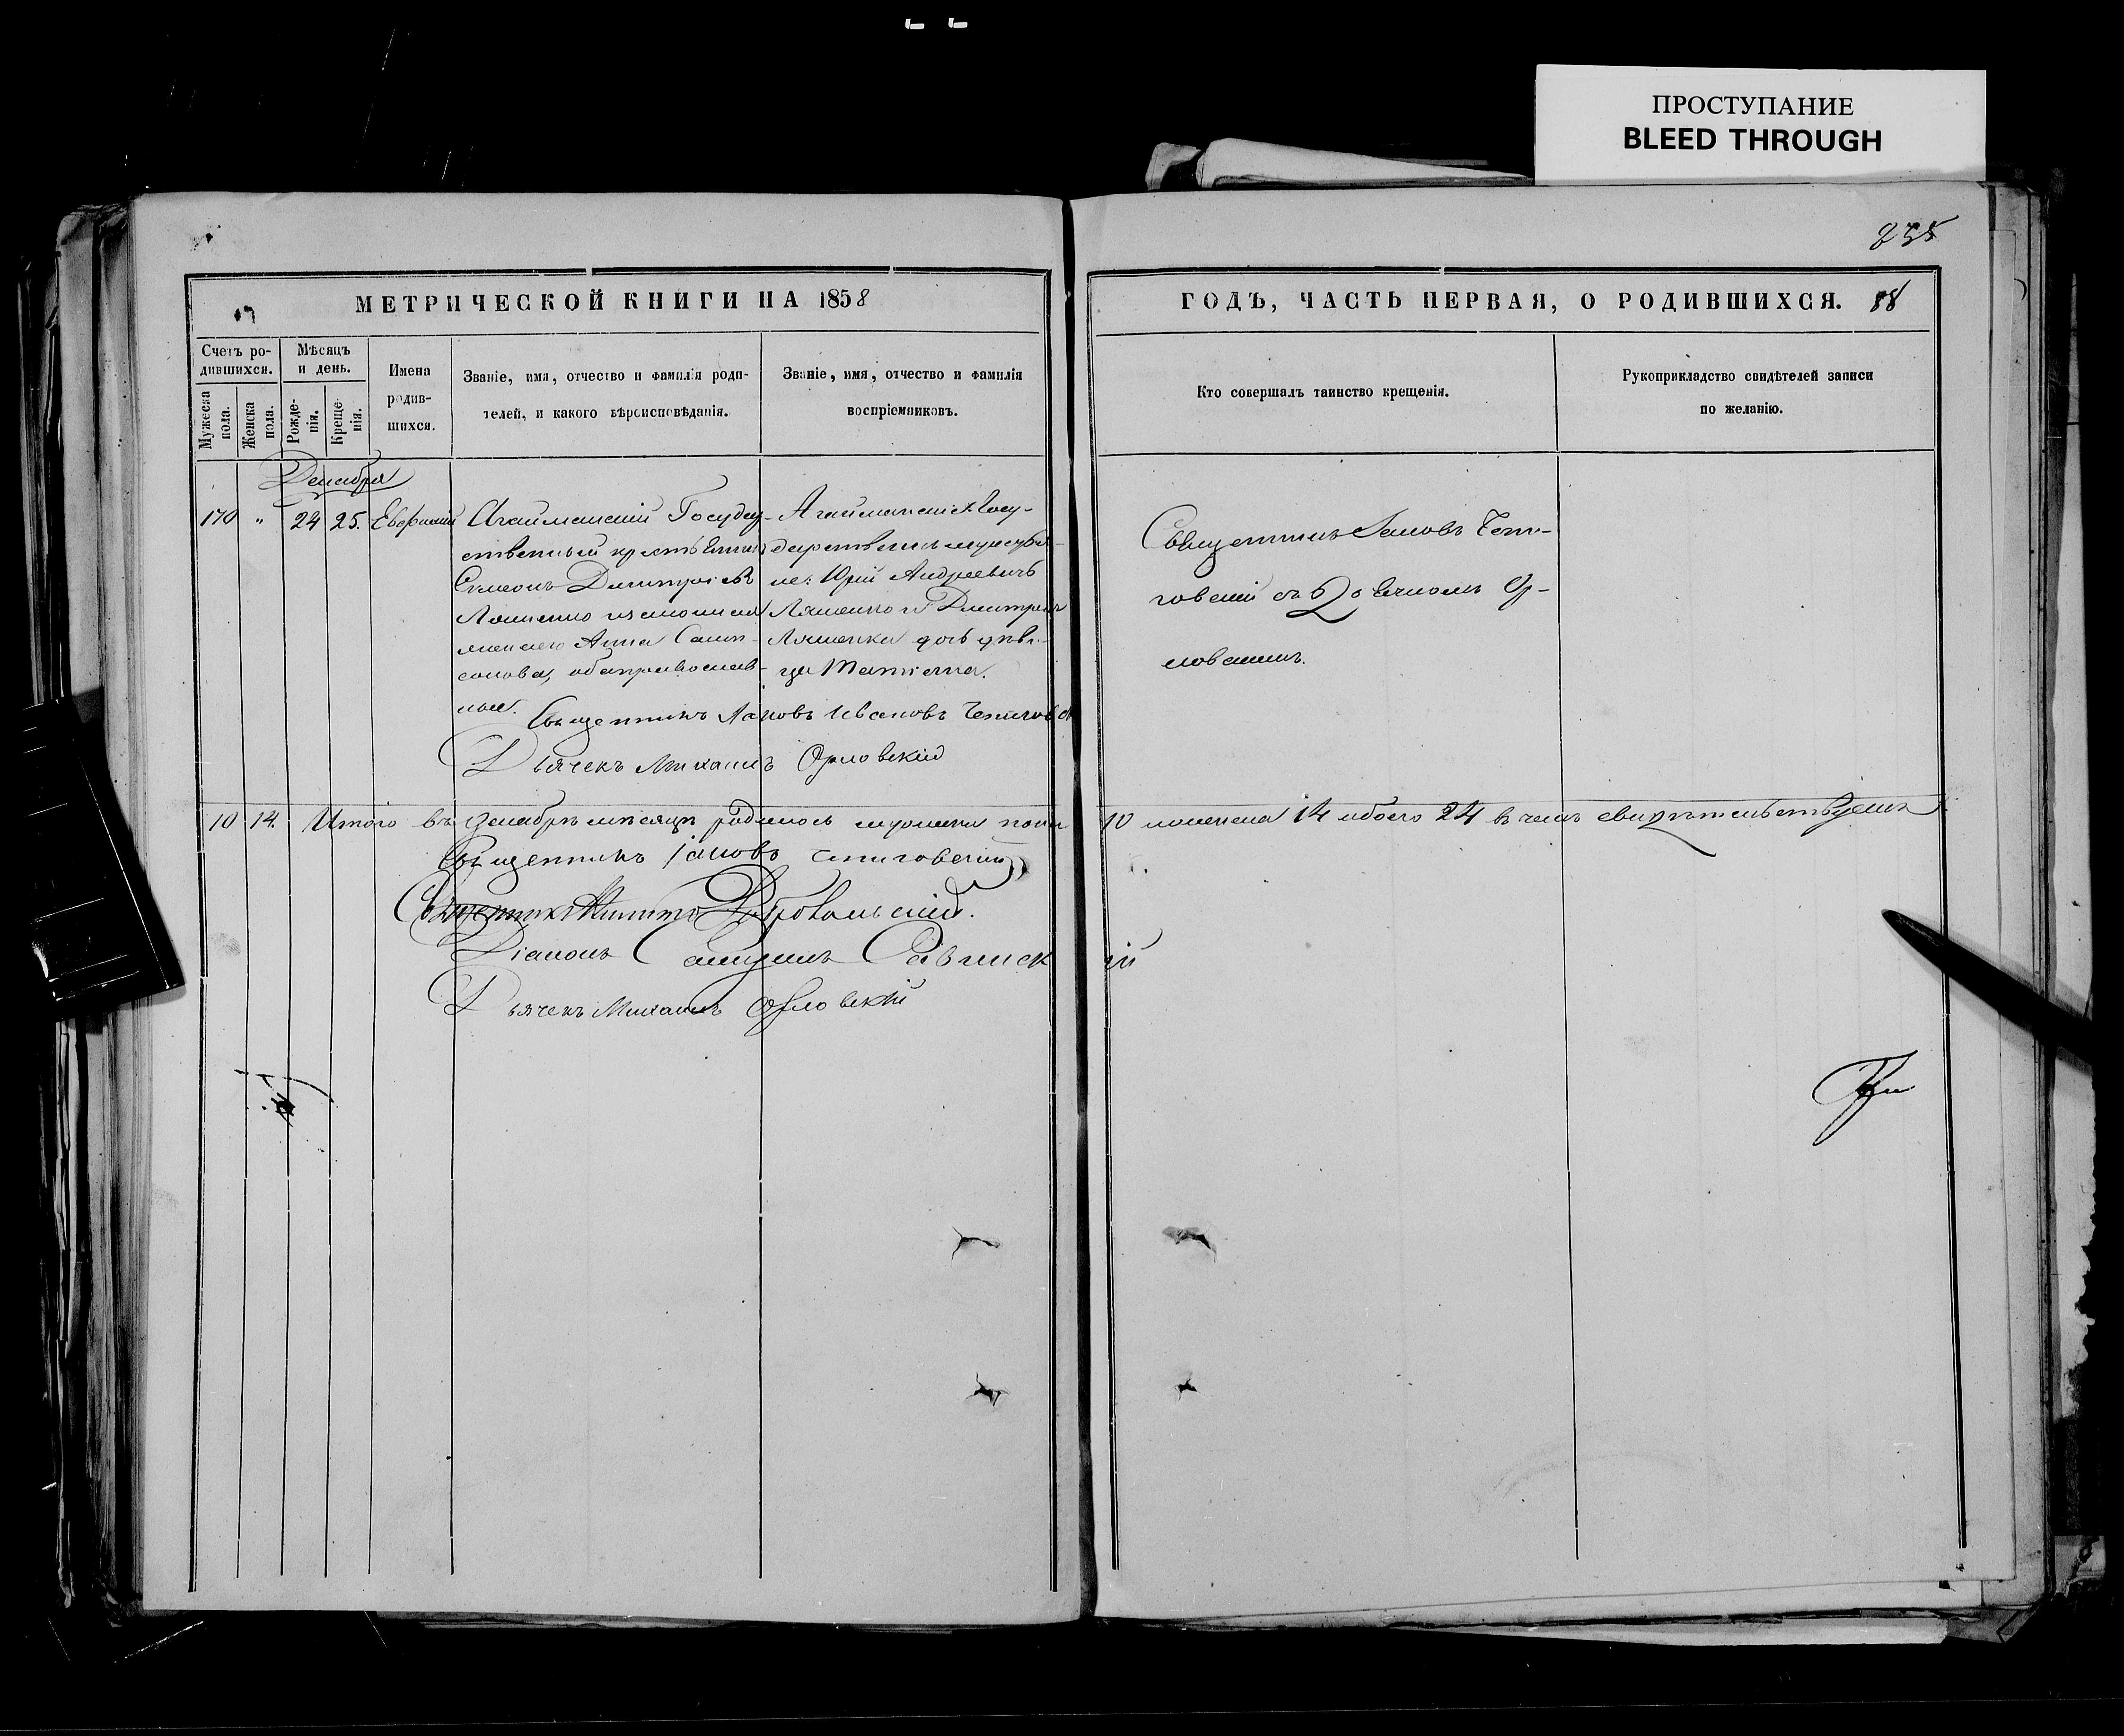 ПРОСТУПАНИЕ
BLEED THROUGH
235
МЕТРИЧЕСКОЙ КНИГИ НА 1858
ГОДЪ, ЧАСТЬ ПЕРВАЯ, О РОДИВШИХСЯ. 88
Счетъ ро-
дившихся.
Мужеска пола.
Женска пола.
Мѣсяцъ
и день.
Рожде-
нія.
Креще-
нія.
Имена
родив-
шихся.
Званіе, имя, отчество и фамилія роди-
телей, и какого вѣроисповѣданія.
Званіе, имя, отчество и фамилія
воспріемниковъ.
Кто совершалъ таинство крещенія.
Рукоприкладство свидѣтелей записи
по желанію.
Декабря
170 " 24 25. Евфимій
Агайманскій Государ-
ственный крестьянинъ
Симеонъ Димитріевъ
Ляшенко и законная
жена его Анна Самп-
сонова, оба православ-
ные.
Агайманскіе Госу-
дарственные
Юрій Андреевичъ
Ляшенко и Дмитрія
Ляшенка дочь дѣви-
ца Татіана.
Священникъ Іаковъ Чепи-
говскій съ Дьячкомъ Ор-
ловскимъ.
Священникъ Іаковъ Ивановъ
Дьячекъ Михаилъ Орловскій
10 14. Итого въ Декабрѣ мѣсяцѣ родилось мужеска пола 10 женска 14 обоего 24 въ чемъ свидѣтельствуемъ
Священникъ Іаковъ Чепиговскій
Священникъ Добровольскій.
Діаконъ Савинскій
Дьячекъ Михаилъ Орловскій